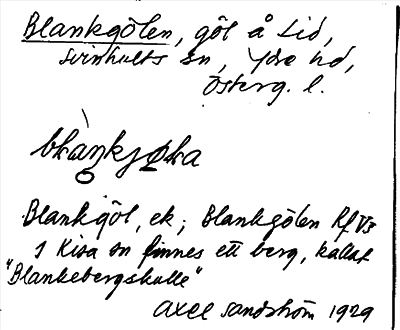 Blankgölen, göl å Lid,
Svinhults sn, Ydre hd,
Österg. l.
Blankgöl, ek; Blankgölen Rf V3
I Kisa sn finnes ett berg, kallat
"Blankebergskulle"
Axel Sandström 1929